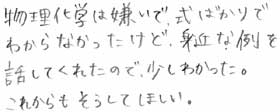 物理化学は嫌いで、式ばかりで
わからなかったけど、身近な例を
話してくれたので、少しわかった。
これからもそうしてほしい。